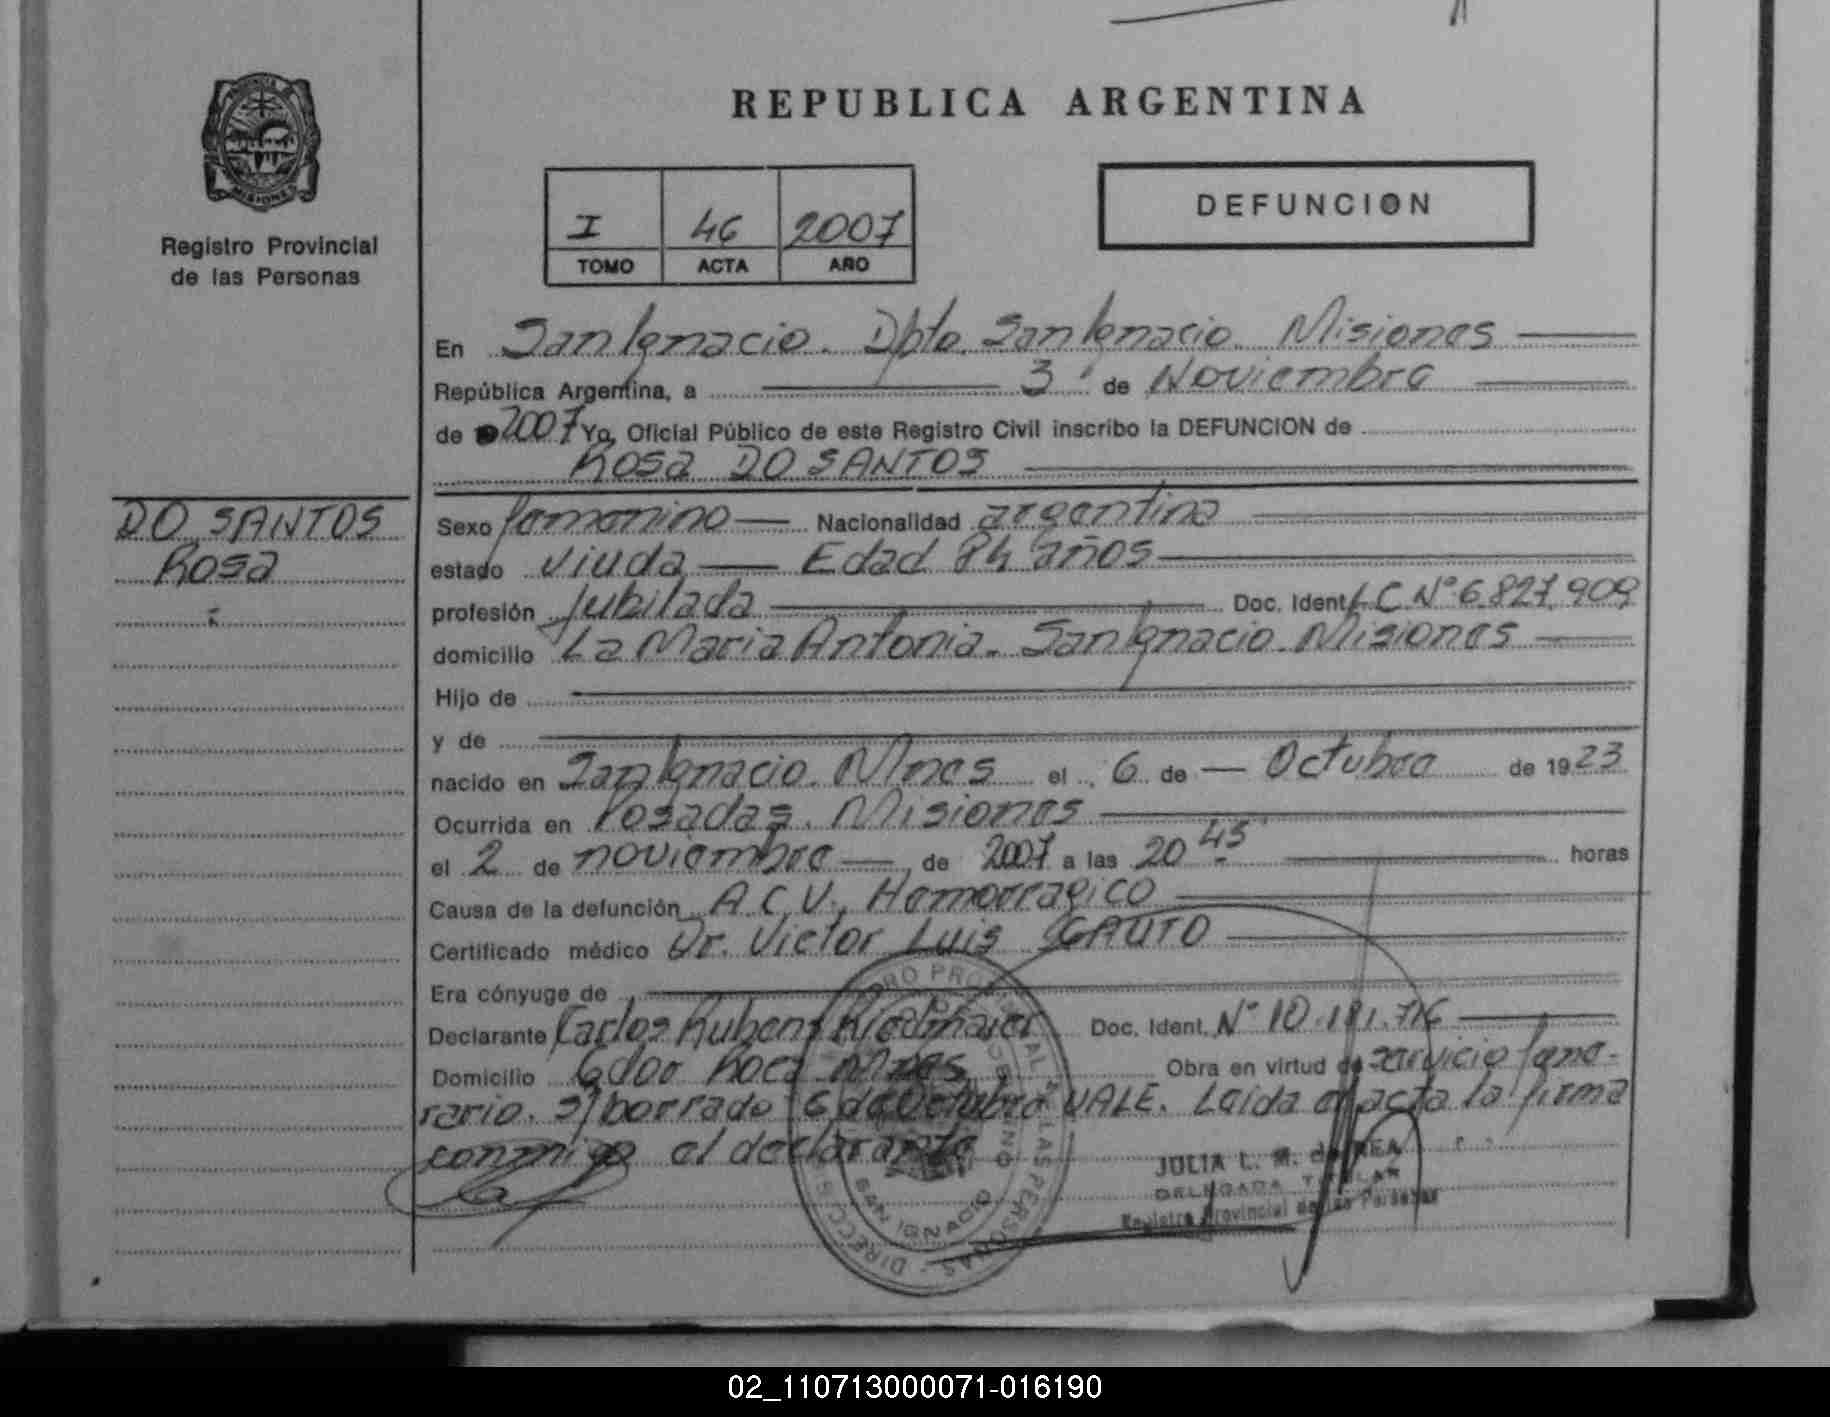 REPUBLICA ARGENTINA
Registro Provincial
de las Personas
MISIONES
I 46 2007
TOMO ACTA AÑO
DEFUNCION
En San Ignacio. Dpto. San Ignacio. Misiones
República Argentina, a 3 de Noviembre
de 2007 Yo, Oficial Público de este Registro Civil inscribo la DEFUNCION de
Rosa DO SANTOS
DO SANTOS
Rosa
Sexo femenino Nacionalidad argentina
estado viuda Edad 84 años
profesión jubilada Doc. Ident. LC N° 6.827.909
domicilio La Maria Antonia. San Ignacio. Misiones
Hijo de
y de
nacido en San Ignacio. Mnes el 6 de Octubre de 1923
Ocurrida en Posadas. Misiones
el 2 de noviembre de 2007 a las 20 45 horas
Causa de la defunción A.C.V. Hemorragico
Certificado médico Dr. Victor Luis GAUTO
Era cónyuge de
Declarante Carlos Rubens Riedmaier Doc. Ident. N° 10.181.716
Domicilio Gdor Roca Mnes Obra en virtud de servicio fune-
rario. s/ borrado 6 de Octubre VALE. Leida el acta la firma
conmigo el declarante
JULIA L. M. de
DELEGADA TITULAR
Registro Provincial de las Personas
SAN IGNACIO
02_110713000071-016190